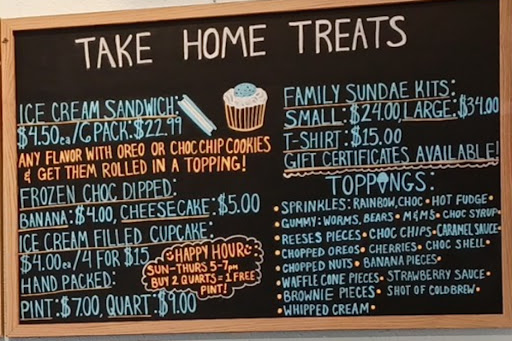 TAKE HOME TREATS
ICE CREAM SANDWICH:
$4.50ea/6 PACK:$22.99
ANY FLAVOR WITH OREO OR CHOC CHIP COOKIES
& GET THEM ROLLED IN A TOPPING!
FROZEN CHOC DIPPED:
BANANA:$4.00, CHEESECAKE:$5.00
ICE CREAM FILLED CUPCAKE:
$4.00ea/4 FOR $15
HAND PACKED:
PINT:$7.00, QUART:$9.00
HAPPY HOUR
SUN-THURS 5-7pm
BUY 2 QUARTS = 1 FREE
PINT!
FAMILY SUNDAE KITS:
SMALL:$24.00, LARGE:$34.00
T-SHIRT:$15.00
GIFT CERTIFICATES AVAILABLE!
TOPPINGS:
• SPRINKLES: RAINBOW, CHOC • HOT FUDGE •
• GUMMY: WORMS, BEARS • M&MS • CHOC SYRUP •
• REESES PIECES • CHOC CHIPS • CARAMEL SAUCE •
• CHOPPED OREOS • CHERRIES • CHOC SHELL •
• CHOPPED NUTS • BANANA PIECES •
• WAFFLE CONE PIECES • STRAWBERRY SAUCE •
• BROWNIE PIECES • SHOT OF COLD BREW •
• WHIPPED CREAM •